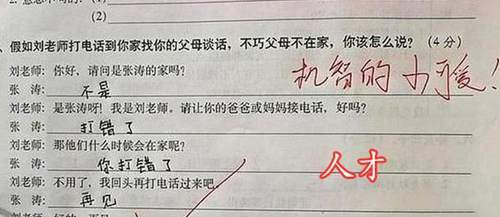 (2)
、假如刘老师打电话到你家找你的父母谈话，不巧父母不在家，你该怎么说？（4 分）
刘老师：你好，请问是张涛的家吗？
机智的小可爱！
张 涛： 不是
刘老师：是张涛呀！我是刘老师，请让你的爸爸或妈妈接电话，好吗？
张 涛： 打错了
刘老师：那他们什么时候会在家呢？
张 涛： 你打错了
人才
刘老师：不用了，我回头再打电话过来吧。
张 涛： 再见